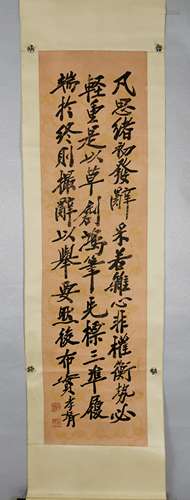 凡思緒初發辭采苦雜心非權衡勢必
輕重是以草創鴻筆先標三準履
端於終則撮辭以舉要然後布實